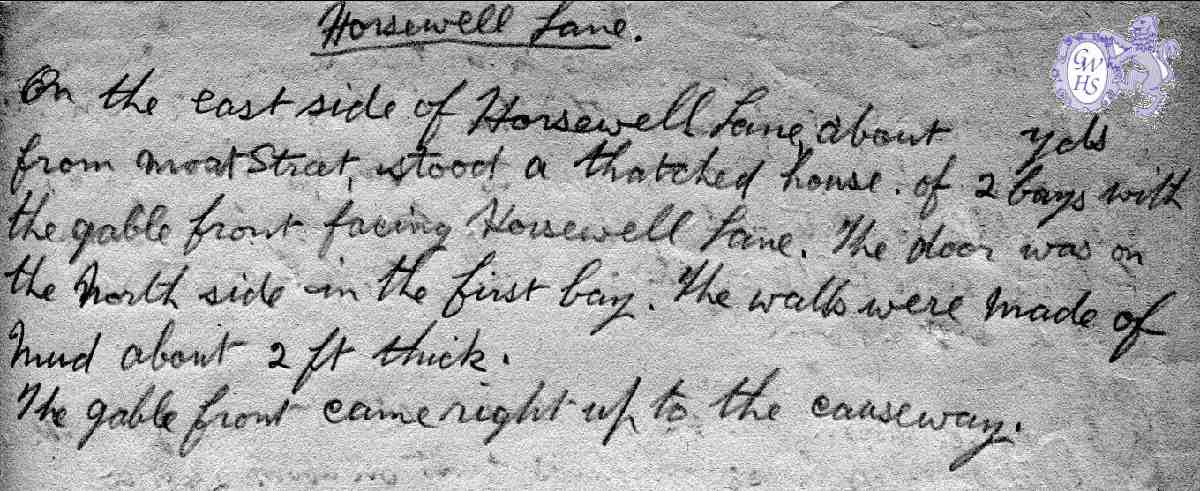 Horsewell Lane.
GW
HS
On the east side of Horsewell Lane, about yds
from Moat Street, stood a thatched house. of 2 bays with
the gable front facing Horsewell Lane. The door was on
the North side in the first bay. The walls were made of
Mud about 2 ft thick.
The gable front came right up to the causeway.